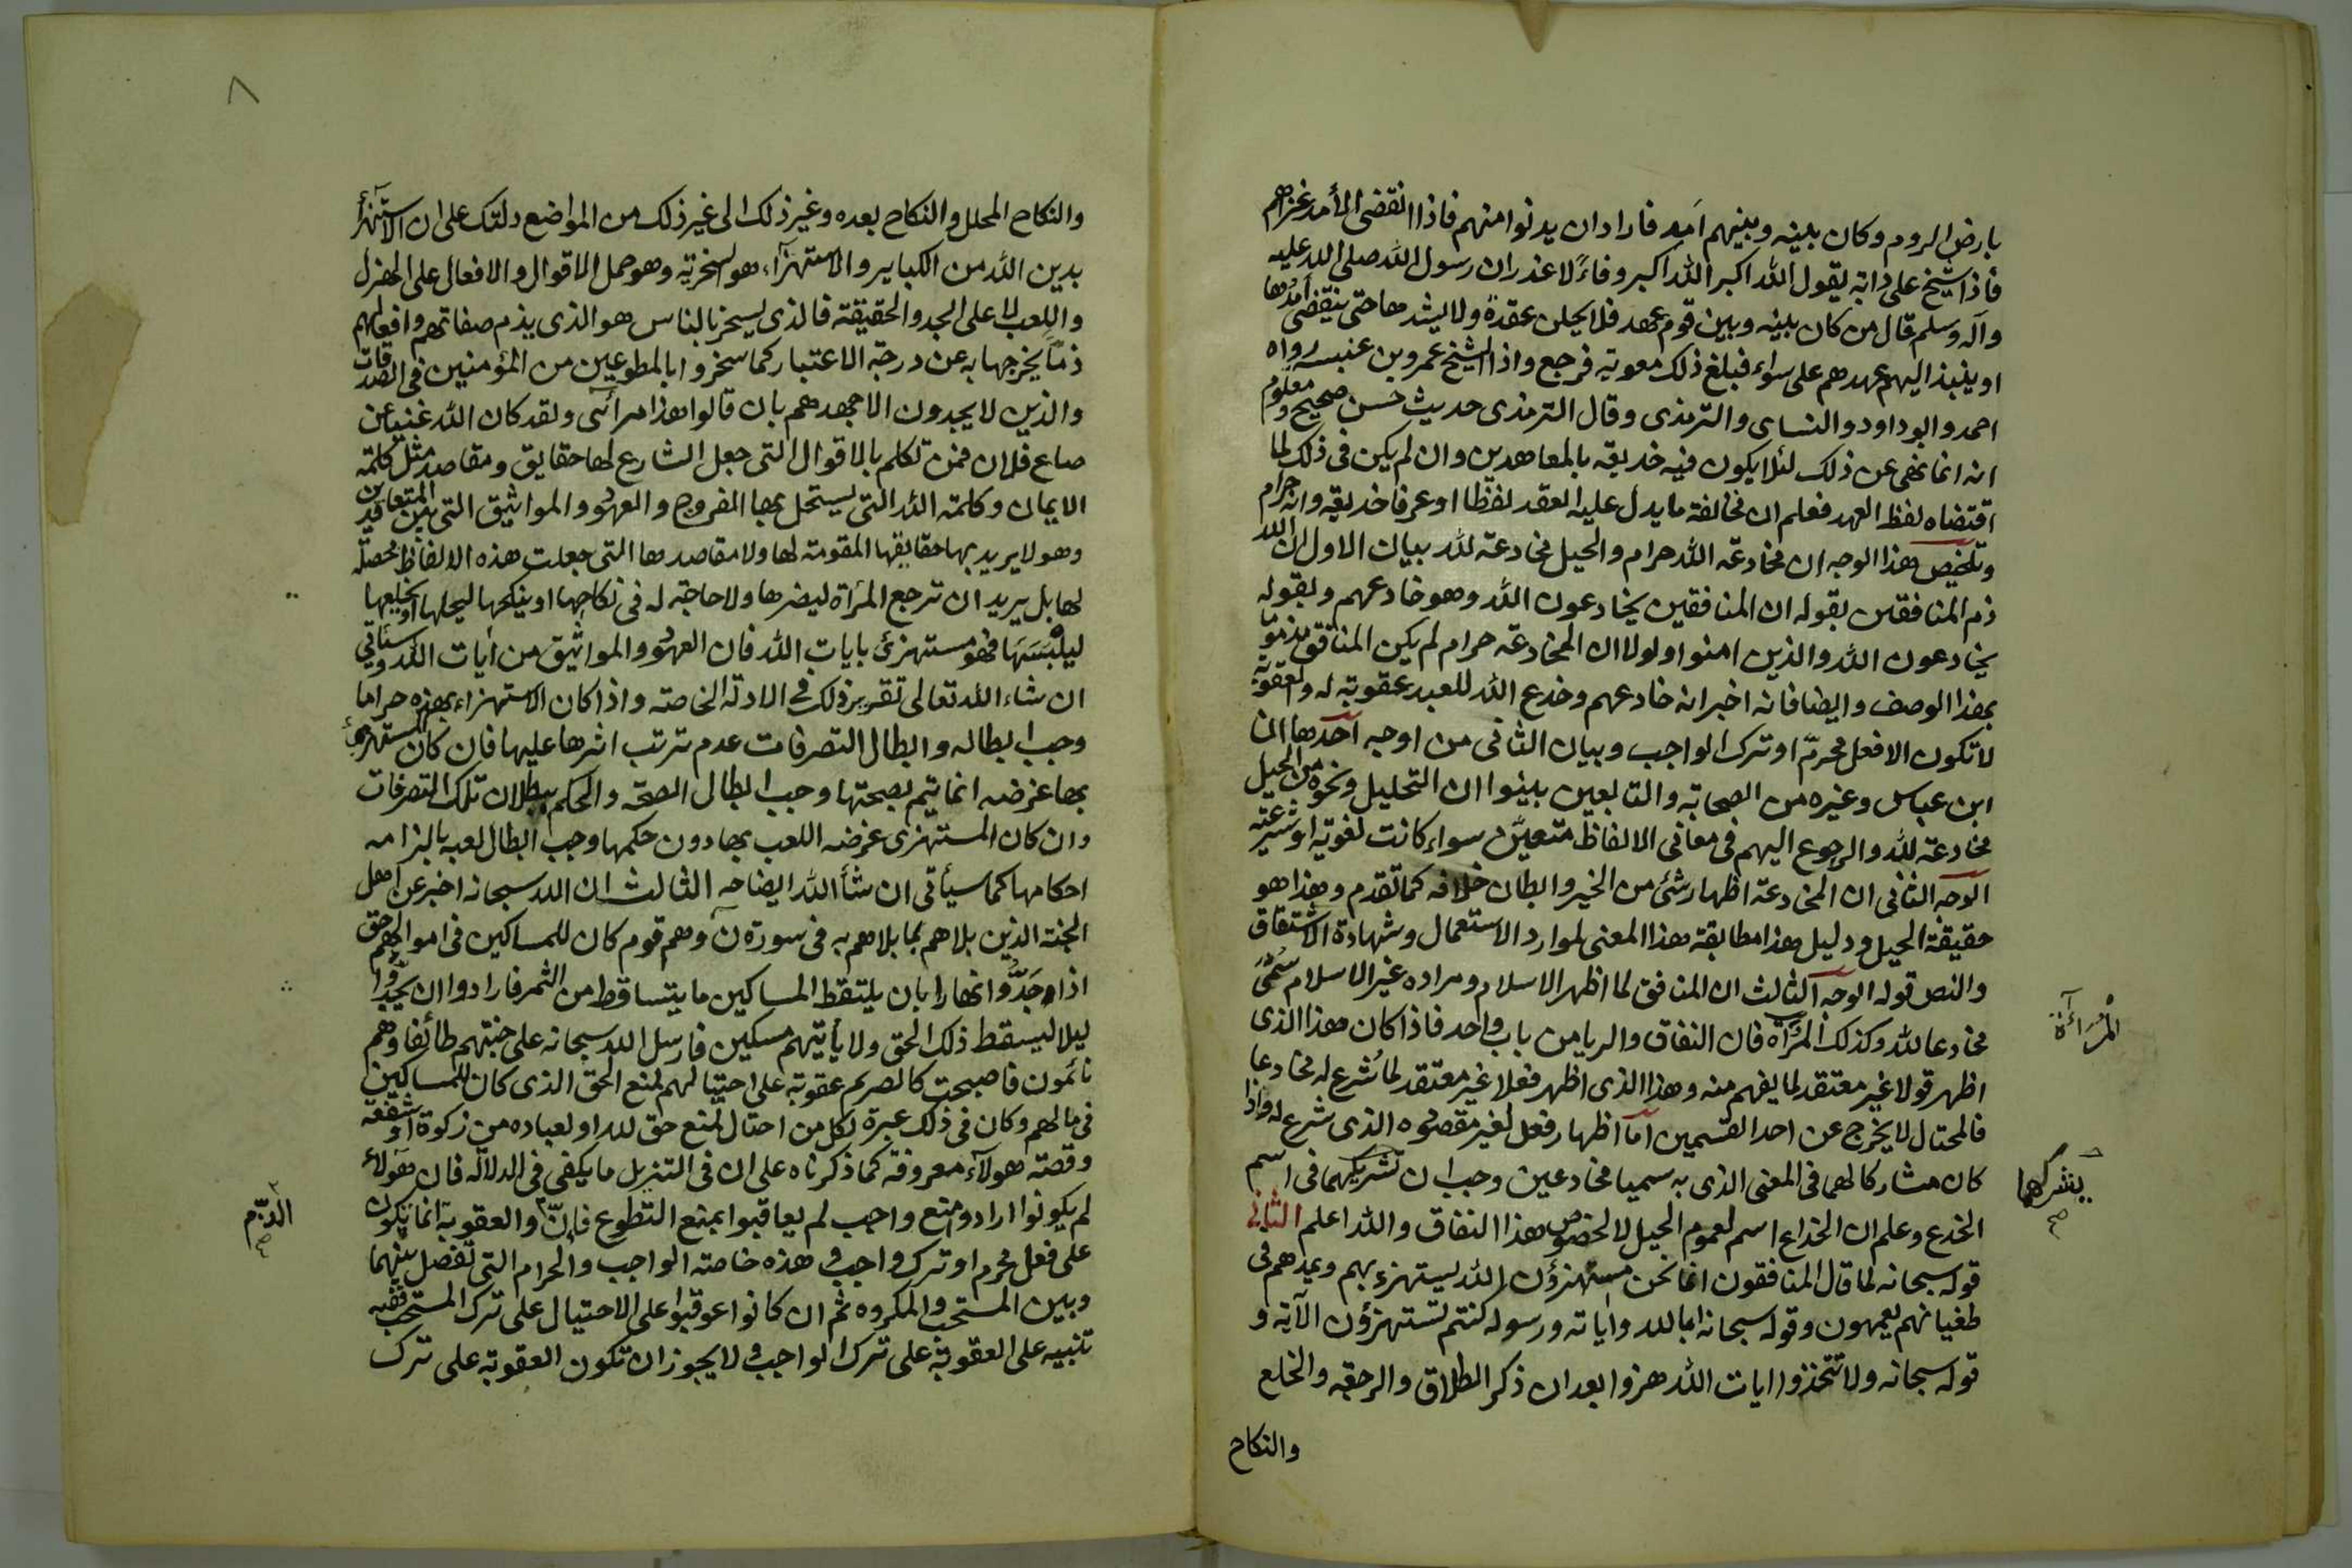 بارض الروم وكان بينه وبينهم امد فاراد ان يدنوا منهم فاذا انقضى الأمد غزاهم
فاذا شيخ على دابة يقول الله اكبر الله اكبر وفاءً لا غدر ان رسول الله صلى الله عليه
وآله وسلم قال من كان بينه وبين قوم عهد فلا يحلن عقدة ولا يشدها حتى ينقضى أمدها
او ينبذ اليهم عهدهم على سواء فبلغ ذلك معوية فرجع واذا الشيخ عمرو بن عنبسه رواه
احمد وابو داود والنساى والترمذى وقال الترمذى حديث حسن صحيح ومعلوم
انه انما نهى عن ذلك لئلا يكون فيه خديعة بالمعاهدين وان لم يكن فى ذلك لما
اقتضاه لفظ العهد فعلم ان مخالفة ما يدل عليه العقد لفظا او عرفا خديعة وانه حرام
وتلخيص هذا الوجه ان مخادعة الله حرام والحيل مخادعة لله بيان الاول ان الله
ذم المنافقين بقوله ان المنافقين يخادعون الله وهو خادعهم وبقوله
يخادعون الله والذين امنوا ولولا ان المخادعة حرام لم يكن المنافق مذموما
بهذا الوصف وايضا فانه اخبر انه خادعهم وخدع الله للعبد عقوبة له والعقوبة
لا تكون الا فعل محرم او ترك الواجب وبيان الثانى من اوجه احدها ان
ابن عباس وغيره من الصحابة والتابعين بينوا ان التحليل ونحوه من الحيل
مخادعة لله والرجوع اليهم فى معانى الالفاظ متعين سواء كانت لغوية او شرعية
الوجه الثانى ان المخادعة اظهار شئ من الخير وابطان خلافه كما تقدم وهذا هو
حقيقة الحيل ودليل هذا مطابقة هذا المعنى لموارد الاستعمال وشهادة الاشتقاق
والنص قوله الوجه الثالث ان المنافق لما اظهر الاسلام ومراده غير الاسلام سُمّى
مخادعا لله وكذلك المرآة فان النفاق والريا من باب واحد فاذا كان هذا الذى
المرآءة
اظهر قولا غير معتقد لما يفهم منه وهذا الذى اظهر فعلا غير معتقد لما شُرع له مخادعا
فالمحتال لا يخرج عن احد القسمين اما اظهار فعل لغير مقصوده الذى شرع له واذا
كان مشاركا لهما فى المعنى الذى به سميا مخادعين وجب ان تشريكهما فى اسم
يشركهما صح
الخدع وعلم ان الخداع اسم لعموم الحيل لا لخصوص هذا النفاق والله اعلم الثانى
قوله سبحانه لما قال المنافقون انما نحن مستهزؤن الله يستهزء بهم ويمدهم فى
طغيانهم يعمهون وقوله سبحانه ابالله واياته ورسوله كنتم تستهزؤن الآية و
قوله سبحانه ولا تتخذوا ايات الله هزوا بعد ان ذكر الطلاق والرجعة والخلع
والنكاح
٨
والنكاح المحلل والنكاح بعده وغير ذلك الى غير ذلك من المواضع دلتك على ان الاستهزأ
بدين الله من الكباير والاستهزآء هو السخرية وهو حمل الاقوال والافعال على الهزل
واللعب لا على الجد والحقيقة فالذى يسخر بالناس هو الذى يذم صفاتهم وافعالهم
ذماً يخرجها به عن درجة الاعتبار كما سخروا بالمطوعين من المؤمنين فى الصدقات
والذين لا يجدون الا جهدهم بان قالوا هذا مرائى ولقد كان الله غنيا عن
صاع فلان فمن تكلم بالاقوال التى جعل الشارع لها حقايق ومقاصد مثل كلمة
الايمان وكلمة الله التى يستحل بها الفروج والعهود والمواثيق التى بين المتعاقدين
وهو لا يريد بها حقايقها المقومة لها ولا مقاصدها التى جعلت هذه الالفاظ محصلة
لها بل يريد ان ترجع المرأة ليضرها ولا حاجة له فى نكاحها او ينكحها ليحلها او يخلعها
ليلبسها فهو مستهزئ بايات الله فان العهود والمواثيق من ايات الله وسيأتى
ان شاء الله تعالى تقرير ذلك فى الادلة الخاصة واذا كان الاستهزاء بهذه حراما
وجب ابطاله وابطال التصرفات عدم ترتب اثرها عليها فان كان المستهزئ
بها غرضه انما يتم بصحتها وجب ابطال الصحة والحكم ببطلان تلك التصرفات
وان كان المستهزى غرضه اللعب بها دون حكمها وجب ابطال لعبه بالزامه
احكامها كما سيأتى ان شأ الله ايضاحه الثالث ان الله سبحانه اخبر عن اهل
الجنة الذين بلاهم بما بلاهم به فى سورة نٓ وهم قوم كان للمساكين فى اموالهم حق
اذا وجَدُّوا نهارا بان يلتقط المساكين ما يتساقط من الثمر فارادوا ان يجدوا
ليلا ليسقط ذلك الحق ولا يأتيهم مسكين فارسل الله سبحانه على جنتهم طائفا وهم
نائمون فاصبحت كالصريم عقوبة على احتيالهم لمنع الحق الذى كان للمساكين
فى مالهم وكان فى ذلك عبرة لكل من احتال لمنع حق لله او لعباده من زكوة او شفعة
وقصة هولآء معروفة كما ذكرناه على ان فى التنزيل ما يكفى فى الدلالة فان هولاء
لم يكونوا ارادوا منع واجب لم يعاقبوا بمنع التطوع فان والعقوبة انما تكون
الذم صح
على فعل محرم او ترك واجب وهذه خاصة الواجب والحرام التى تفصل بينهما
وبين المستحب والمكروه ثم ان كانوا عوقبوا على الاحتيال على ترك المستحب ففيه
تنبيه على العقوبة على ترك الواجب ولا يجوز ان تكون العقوبة على ترك